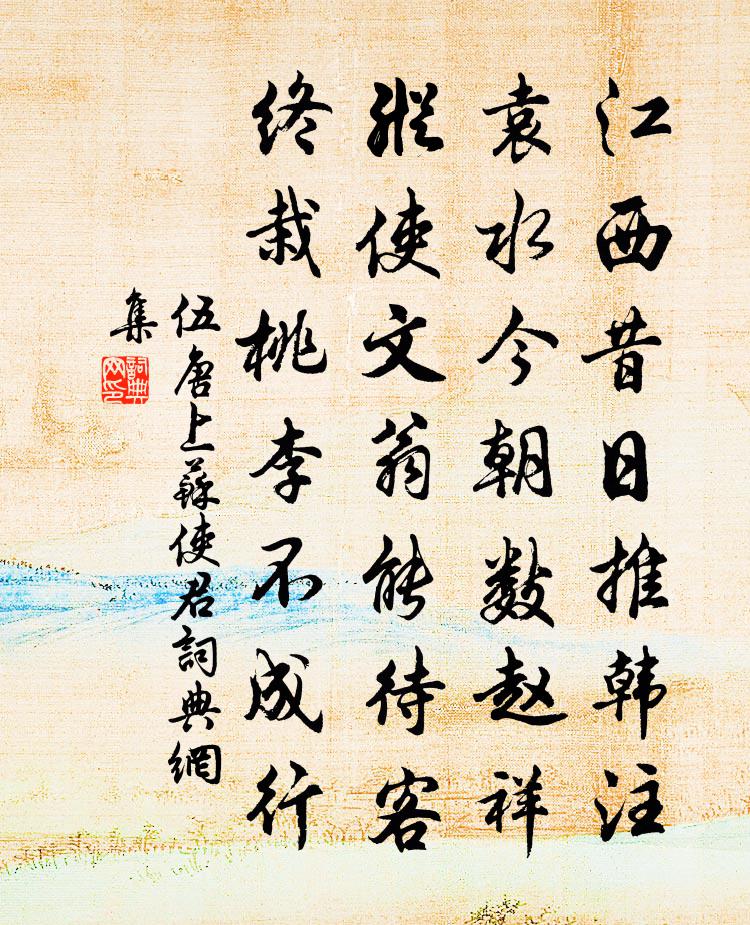 江西昔日推韩注
袁水今朝数赵祥
纵使文翁能待客
终栽桃李不成行
伍唐上蘇使君詞典網
集
詞典網印